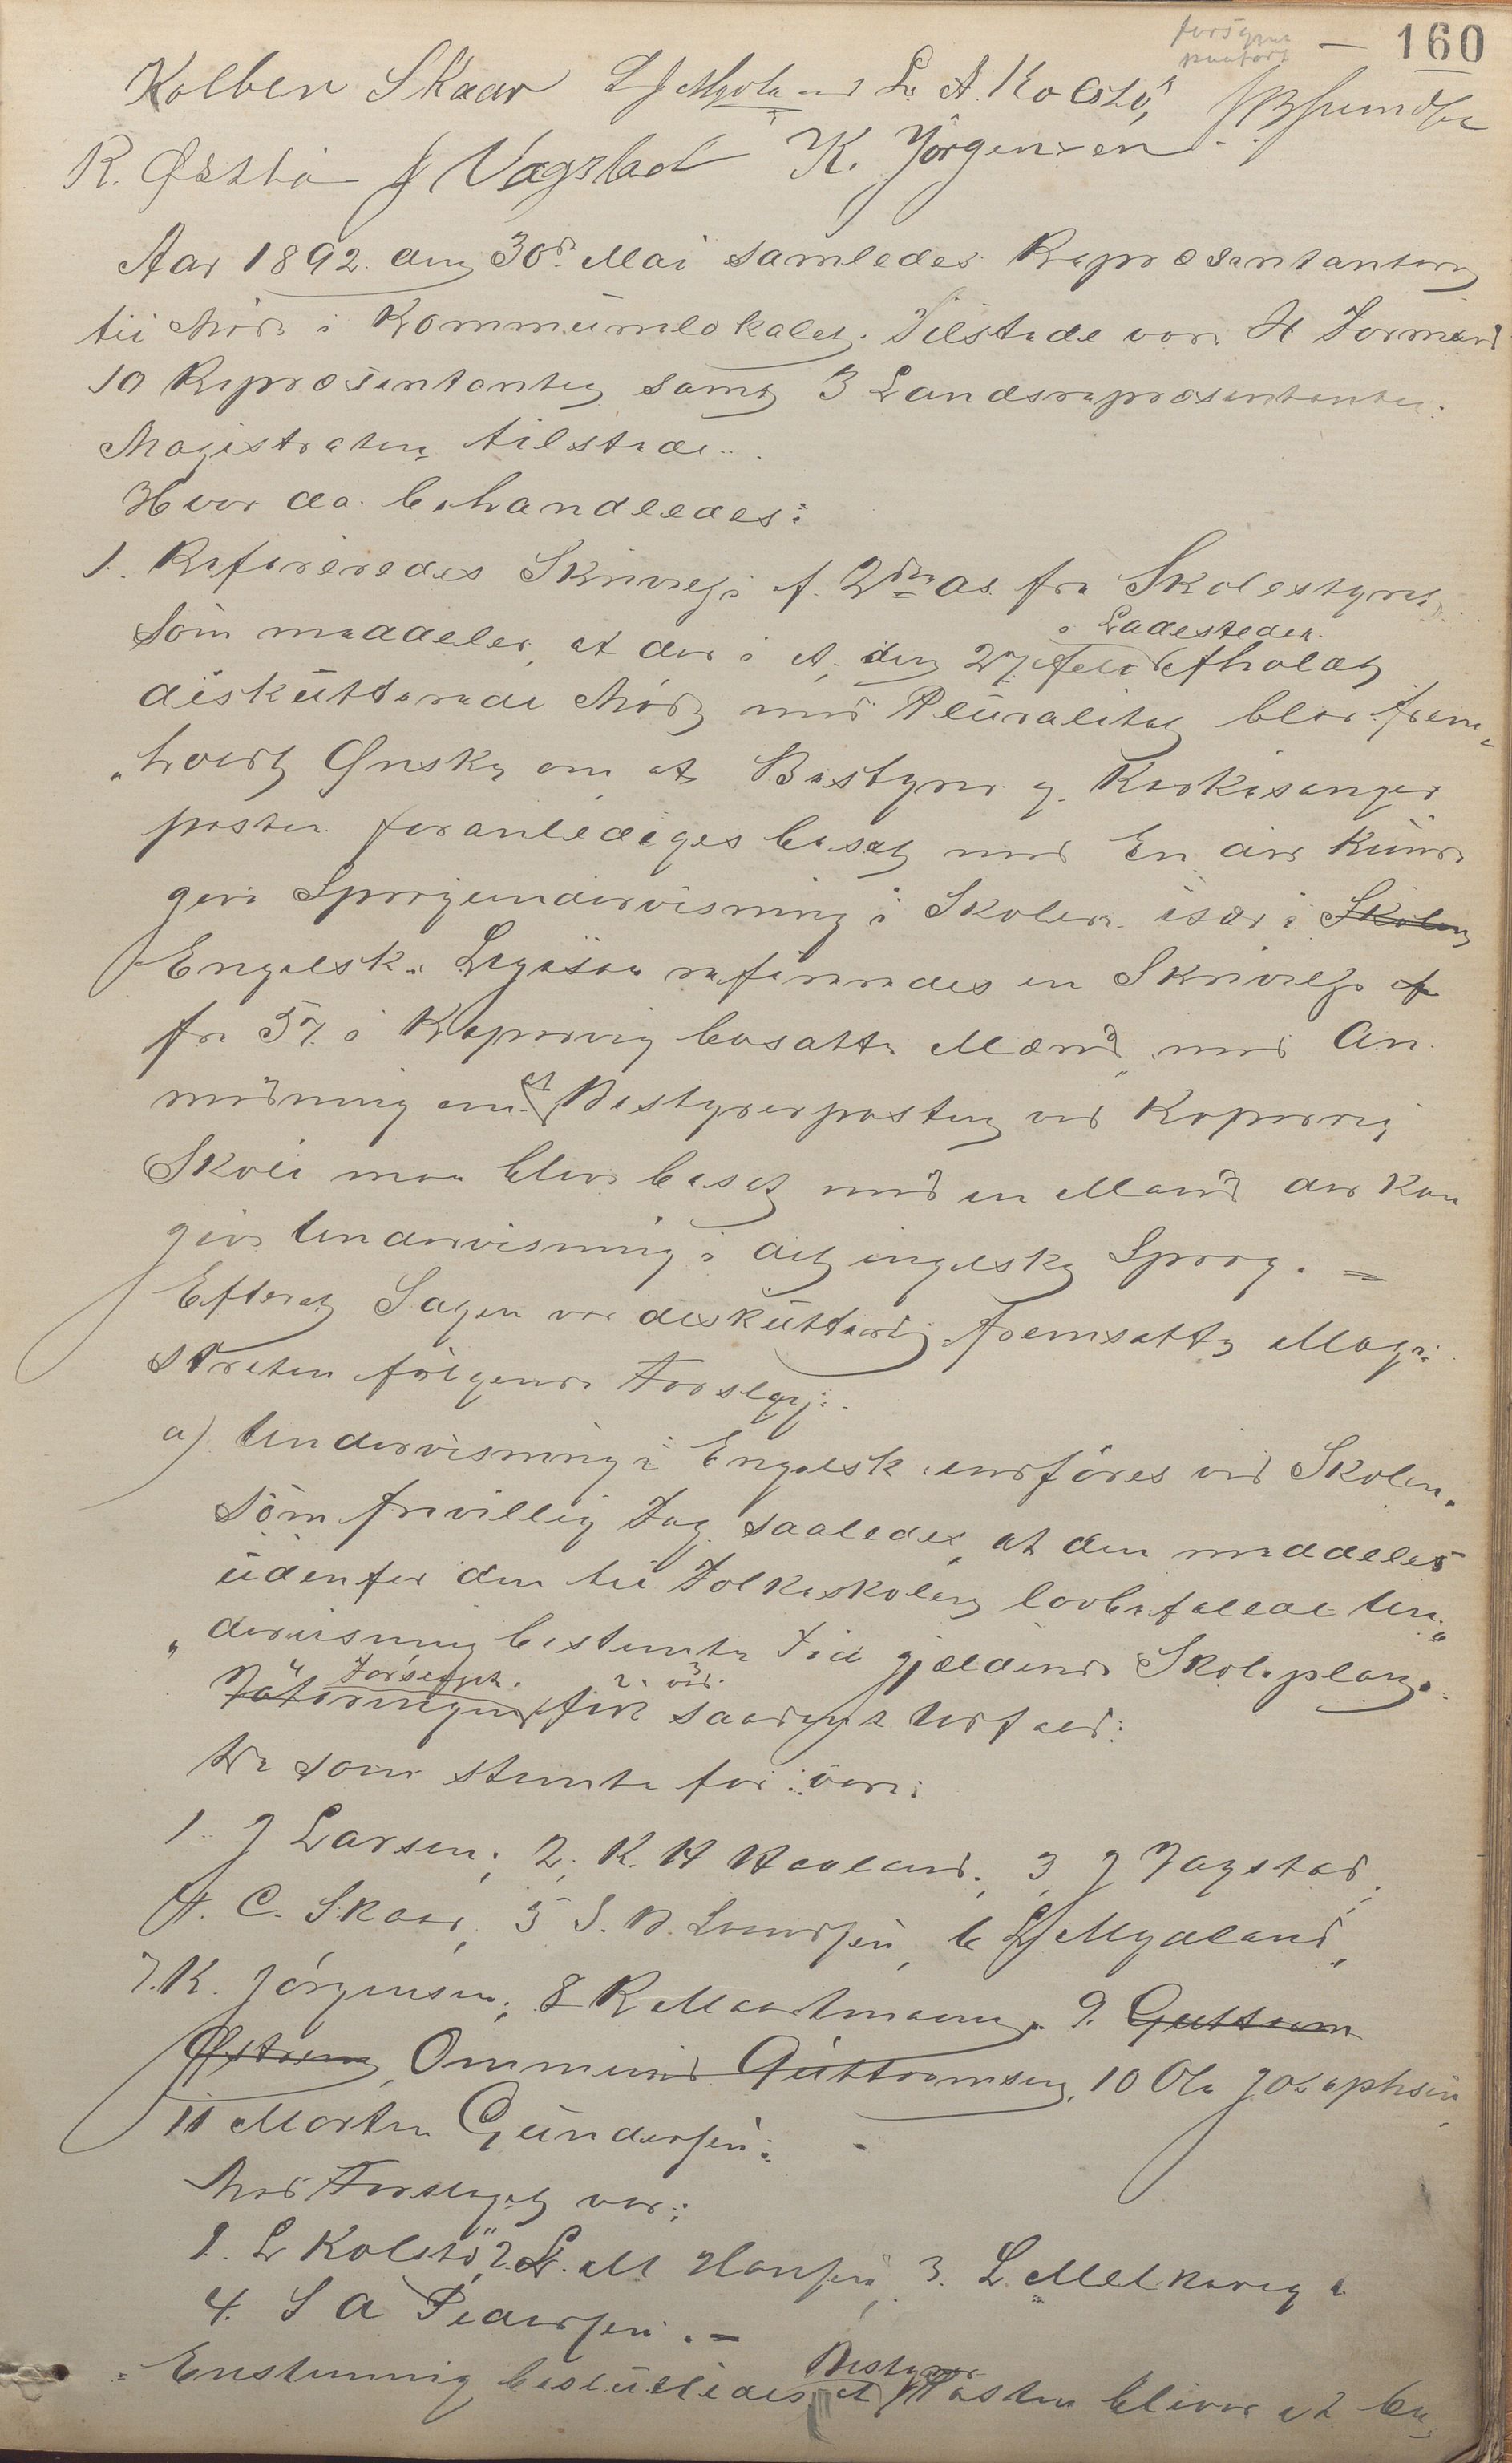 160
Kolben Skaar L J Myland L. A. Kolstö,
R. Østbö J Vagstad K. Jörgensen
Aar 1892 den 30d Mai samledes Repræsentanterne
til Möde i Kommunelokalet. Tilstede vare 4 Formænd
10 Repræsentanter samt 3 Landsrepræsentanter.
Magistraten tilstede.
Hvor da behandledes:
1. Refereredes Skrivelse f. 2den ds. fra Skolestyret
Ladestedet
som meddeler, at der i et den 27 Febr afholdt
diskutterende Möde med Pluralitet blev frem-
hvert Ønske om at Bestyrer og Kirkesanger
posten foranlediges besat med En der kunde
give Sprogundervisning i Skolen især i Skolen
Engelsk. Ligesaa refereredes en Skrivelse af
fra 57 i Kopervig bosatte Mænd, med An
modning om at Bestyrerposten ved Kopervig
Skole maa blive besat med en Mand der kan
give Undervisning i det engelske Sprog. =
Efterat Sagen var diskutteret fremsatte Magi-
straten fölgende Forslag:
a) Undervisning i Engelsk indföres ved Skolen
som frivillig Fag saaledes, at den meddeles
udenfor den til Folkeskolen lovbefalede Un-
dervisning bestemte Tid gjældende Skoleplan.
Forslaget
fik saadant Udfald:
De som stemte for vare:
1. J Larsen, 2. K. H Haaland, 3 J Vagstad,
4. C. Skaar, 5 S. B. Svendsen, 6 L J Myeland,
7. K. Jörgensen, 8 R Maartmann, 9. Guttorm
Østrem, Ommund Guttormsen, 10 Ole Josephsen,
11 Morten Gundersen.
Mod Forslaget var:
1. L Kolstö, 2. L. M Hansen, 3. L. Melkevig
4. S A Pedersen. =
Bestyrer
Enstemmig besluttedes, at Posten bliver at be-